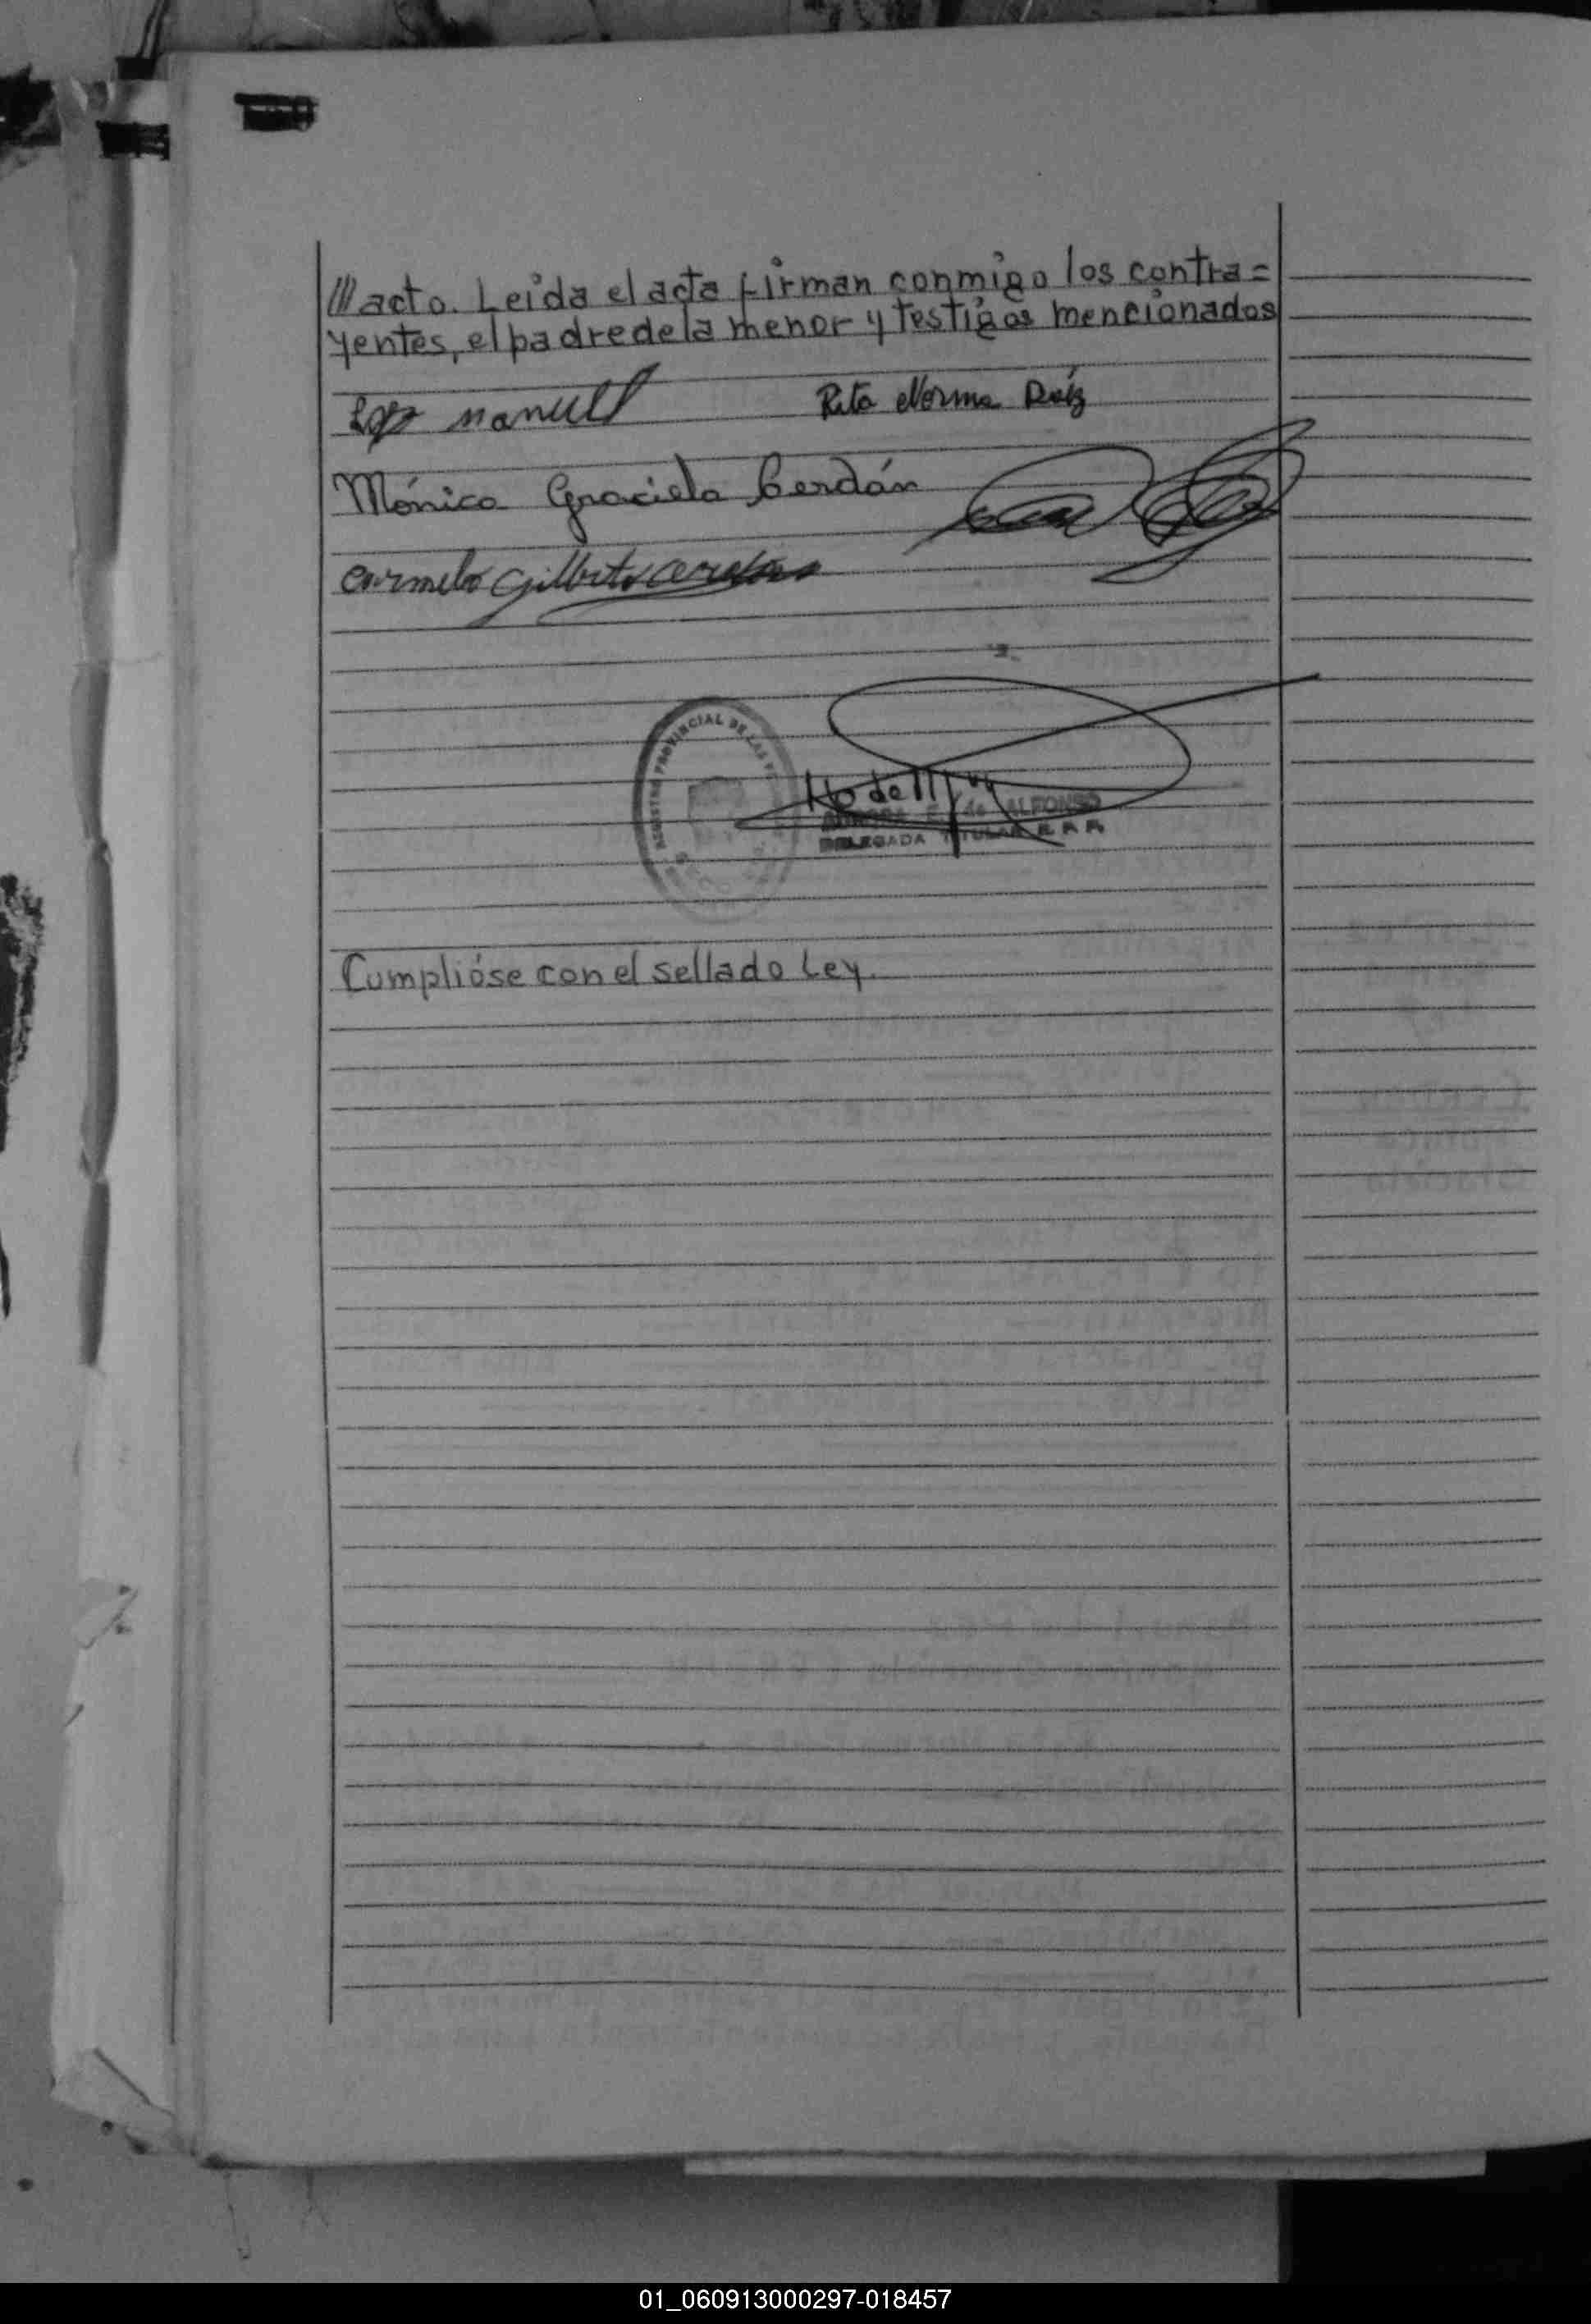 /// acto. Leída el acta firman conmigo los contra=
yentes, el padre de la menor y testigos mencionados
Manuel
Rita Norma Ruíz
Mónica Graciela Cerdán
Carmelo Gilberto Cerdán
REGISTRO PROVINCIAL DE LAS
E. de ALFONSO
DELEGADA TITULAR R. P. P.
Cumplióse con el sellado Ley.
01_060913000297-018457